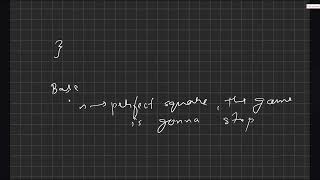 }
Base
n → perfect square, the game
is gonna stop